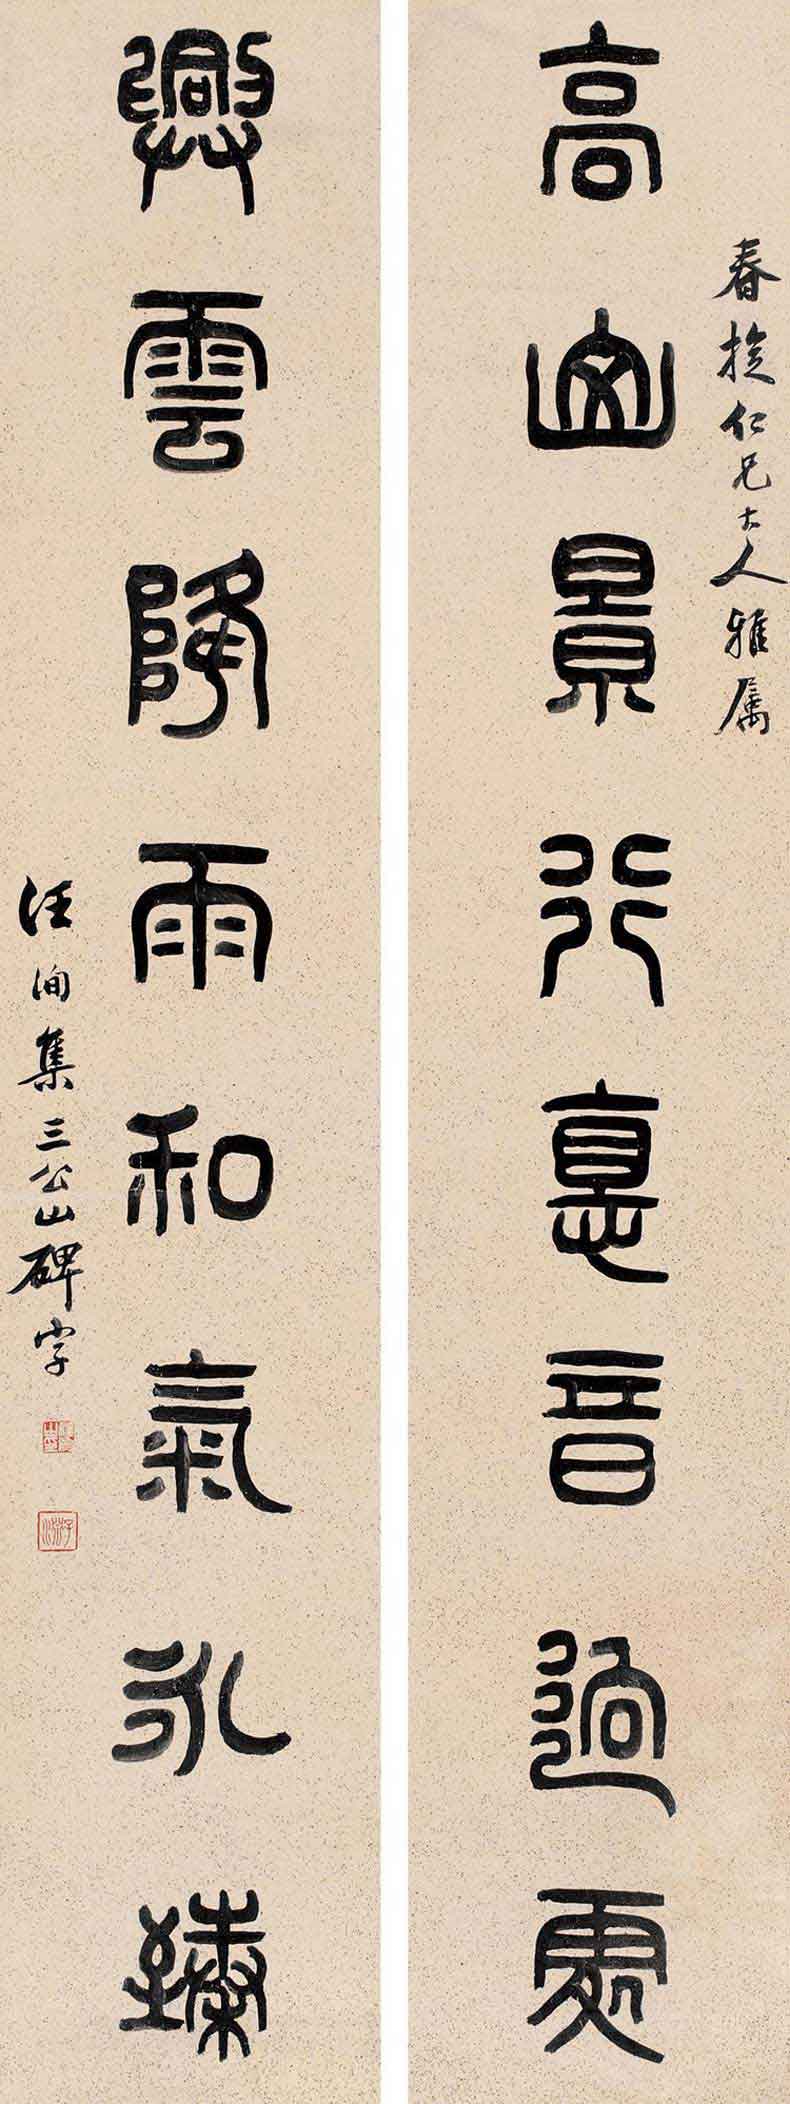 高山景行悳音迥處
春仁兄大人雅属
興雲降雨和氣永臻
汪洵集三公山碑字